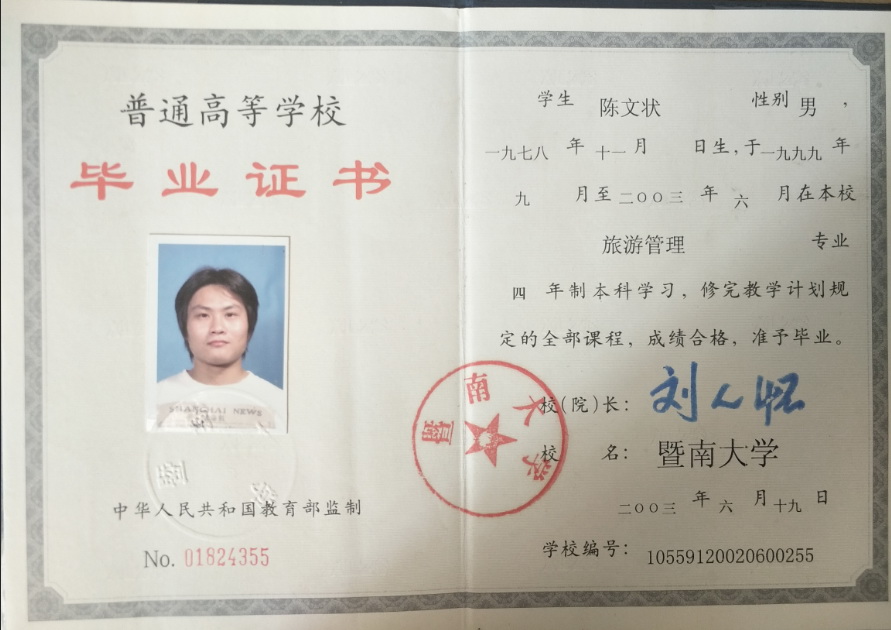 普通高等学校
毕业证书
SHANGHAI NEWS
中华人民共和国教育部监制
No. 01824355
学生 陈文状 性别 男，
一九七八 年 十一 月 日生，于 一九九九 年
九 月至 二〇〇三 年 六 月在本校
旅游管理 专业
四 年制本科学习，修完教学计划规
定的全部课程，成绩合格，准予毕业。
校(院)长： 刘人怀
校 名： 暨南大学
暨南大学
二〇〇三 年 六 月 十九 日
学校编号： 10559120020600255